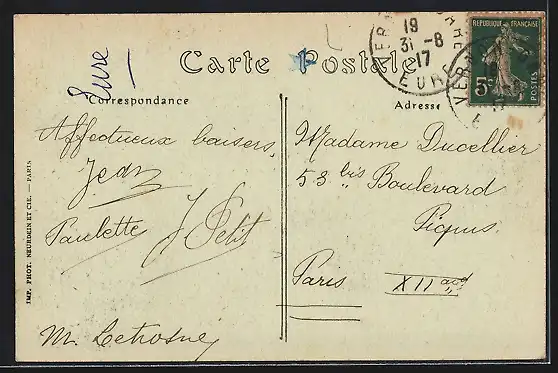 Eure
Carte Postale
Correspondance
Adresse
19
31-8
17
EURE
RÉPUBLIQUE FRANÇAISE
5c
POSTES
Affectueux baisers
Jean
Paulette
J Petit
Madame Ducellier
53 bis Boulevard
Picpus
Paris XII arr
IMP. PHOT. NEURDEIN ET CIE. — PARIS